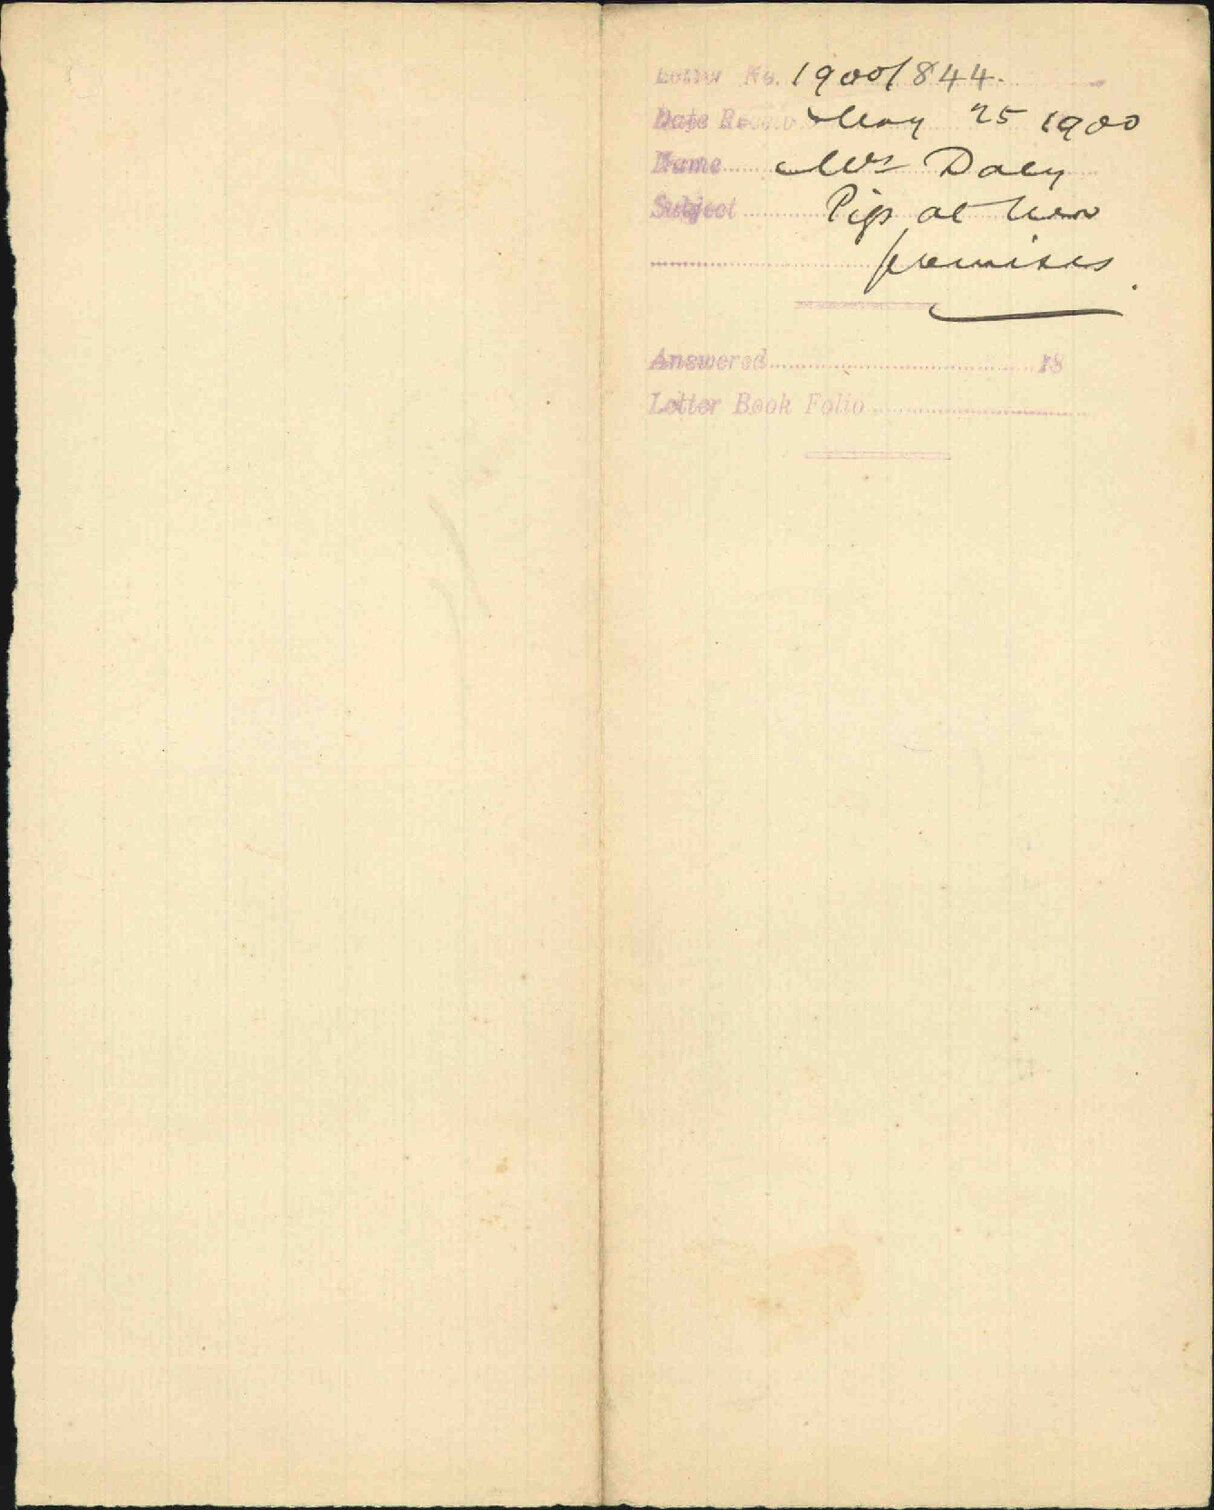 Letter No. 1900/844.
Date Rec'd May 25 1900
Name Mrs Daly
Subject Pigs at her
premises.
Answered 18
Letter Book Folio